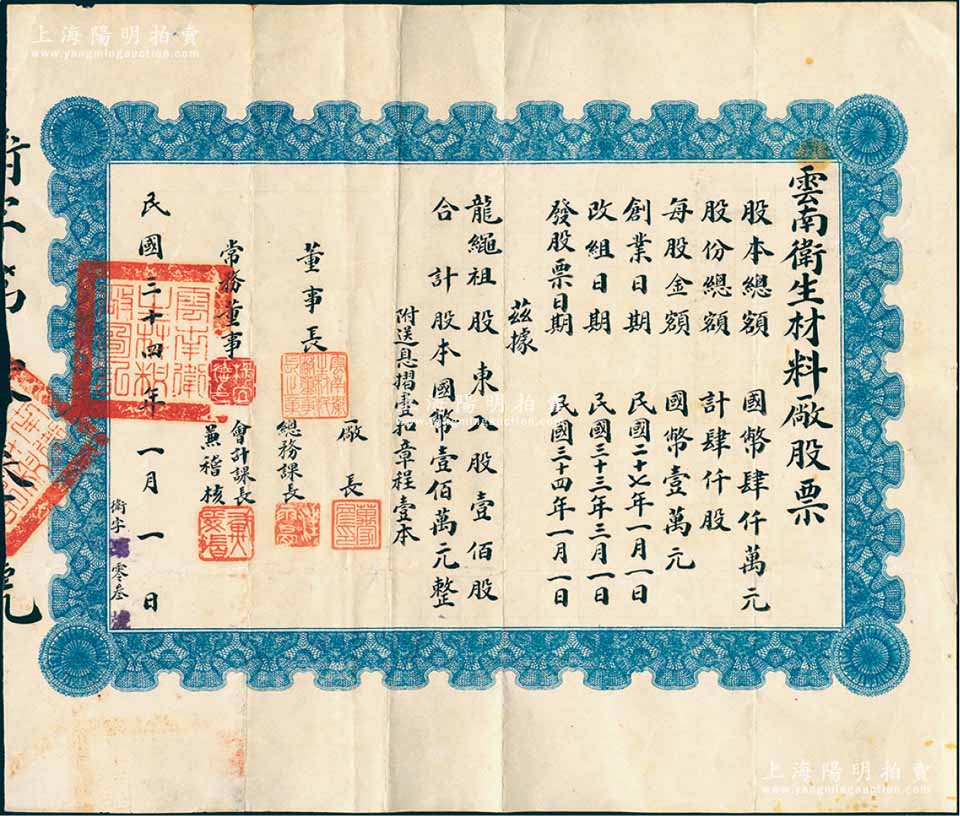 雲南衛生材料廠股票
股本總額 國幣肆仟萬元
股份總額 計肆仟股
每股金額 國幣壹萬元
創業日期 民國二十七年一月一日
改組日期 民國三十三年三月一日
發股票日期 民國三十四年一月一日
茲據
龍繩祖股東入股壹佰股
合計股本國幣壹佰萬元整
附送息摺壹扣章程壹本
董事長
廠長
總務課長
常務董事
會計課長
兼稽核
民國三十四年一月一日
衛字 零叁
上海陽明拍賣
www.yangmingauction.com
上海陽明拍賣
www.yangmingauction.com